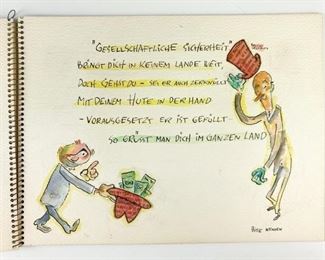 "GESELLSCHAFTLICHE SICHERHEIT"
BRINGT DICH IN KEINEM LANDE WEIT,
DOCH GEHST DU – SEI ER AUCH ZERKNÜLLT
MIT DEINEM HUTE IN DER HAND
– VORAUSGESETZT ER IST GEFÜLLT –
SO GRÜSST MAN DICH IM GANZEN LAND
BITTE WENDEN